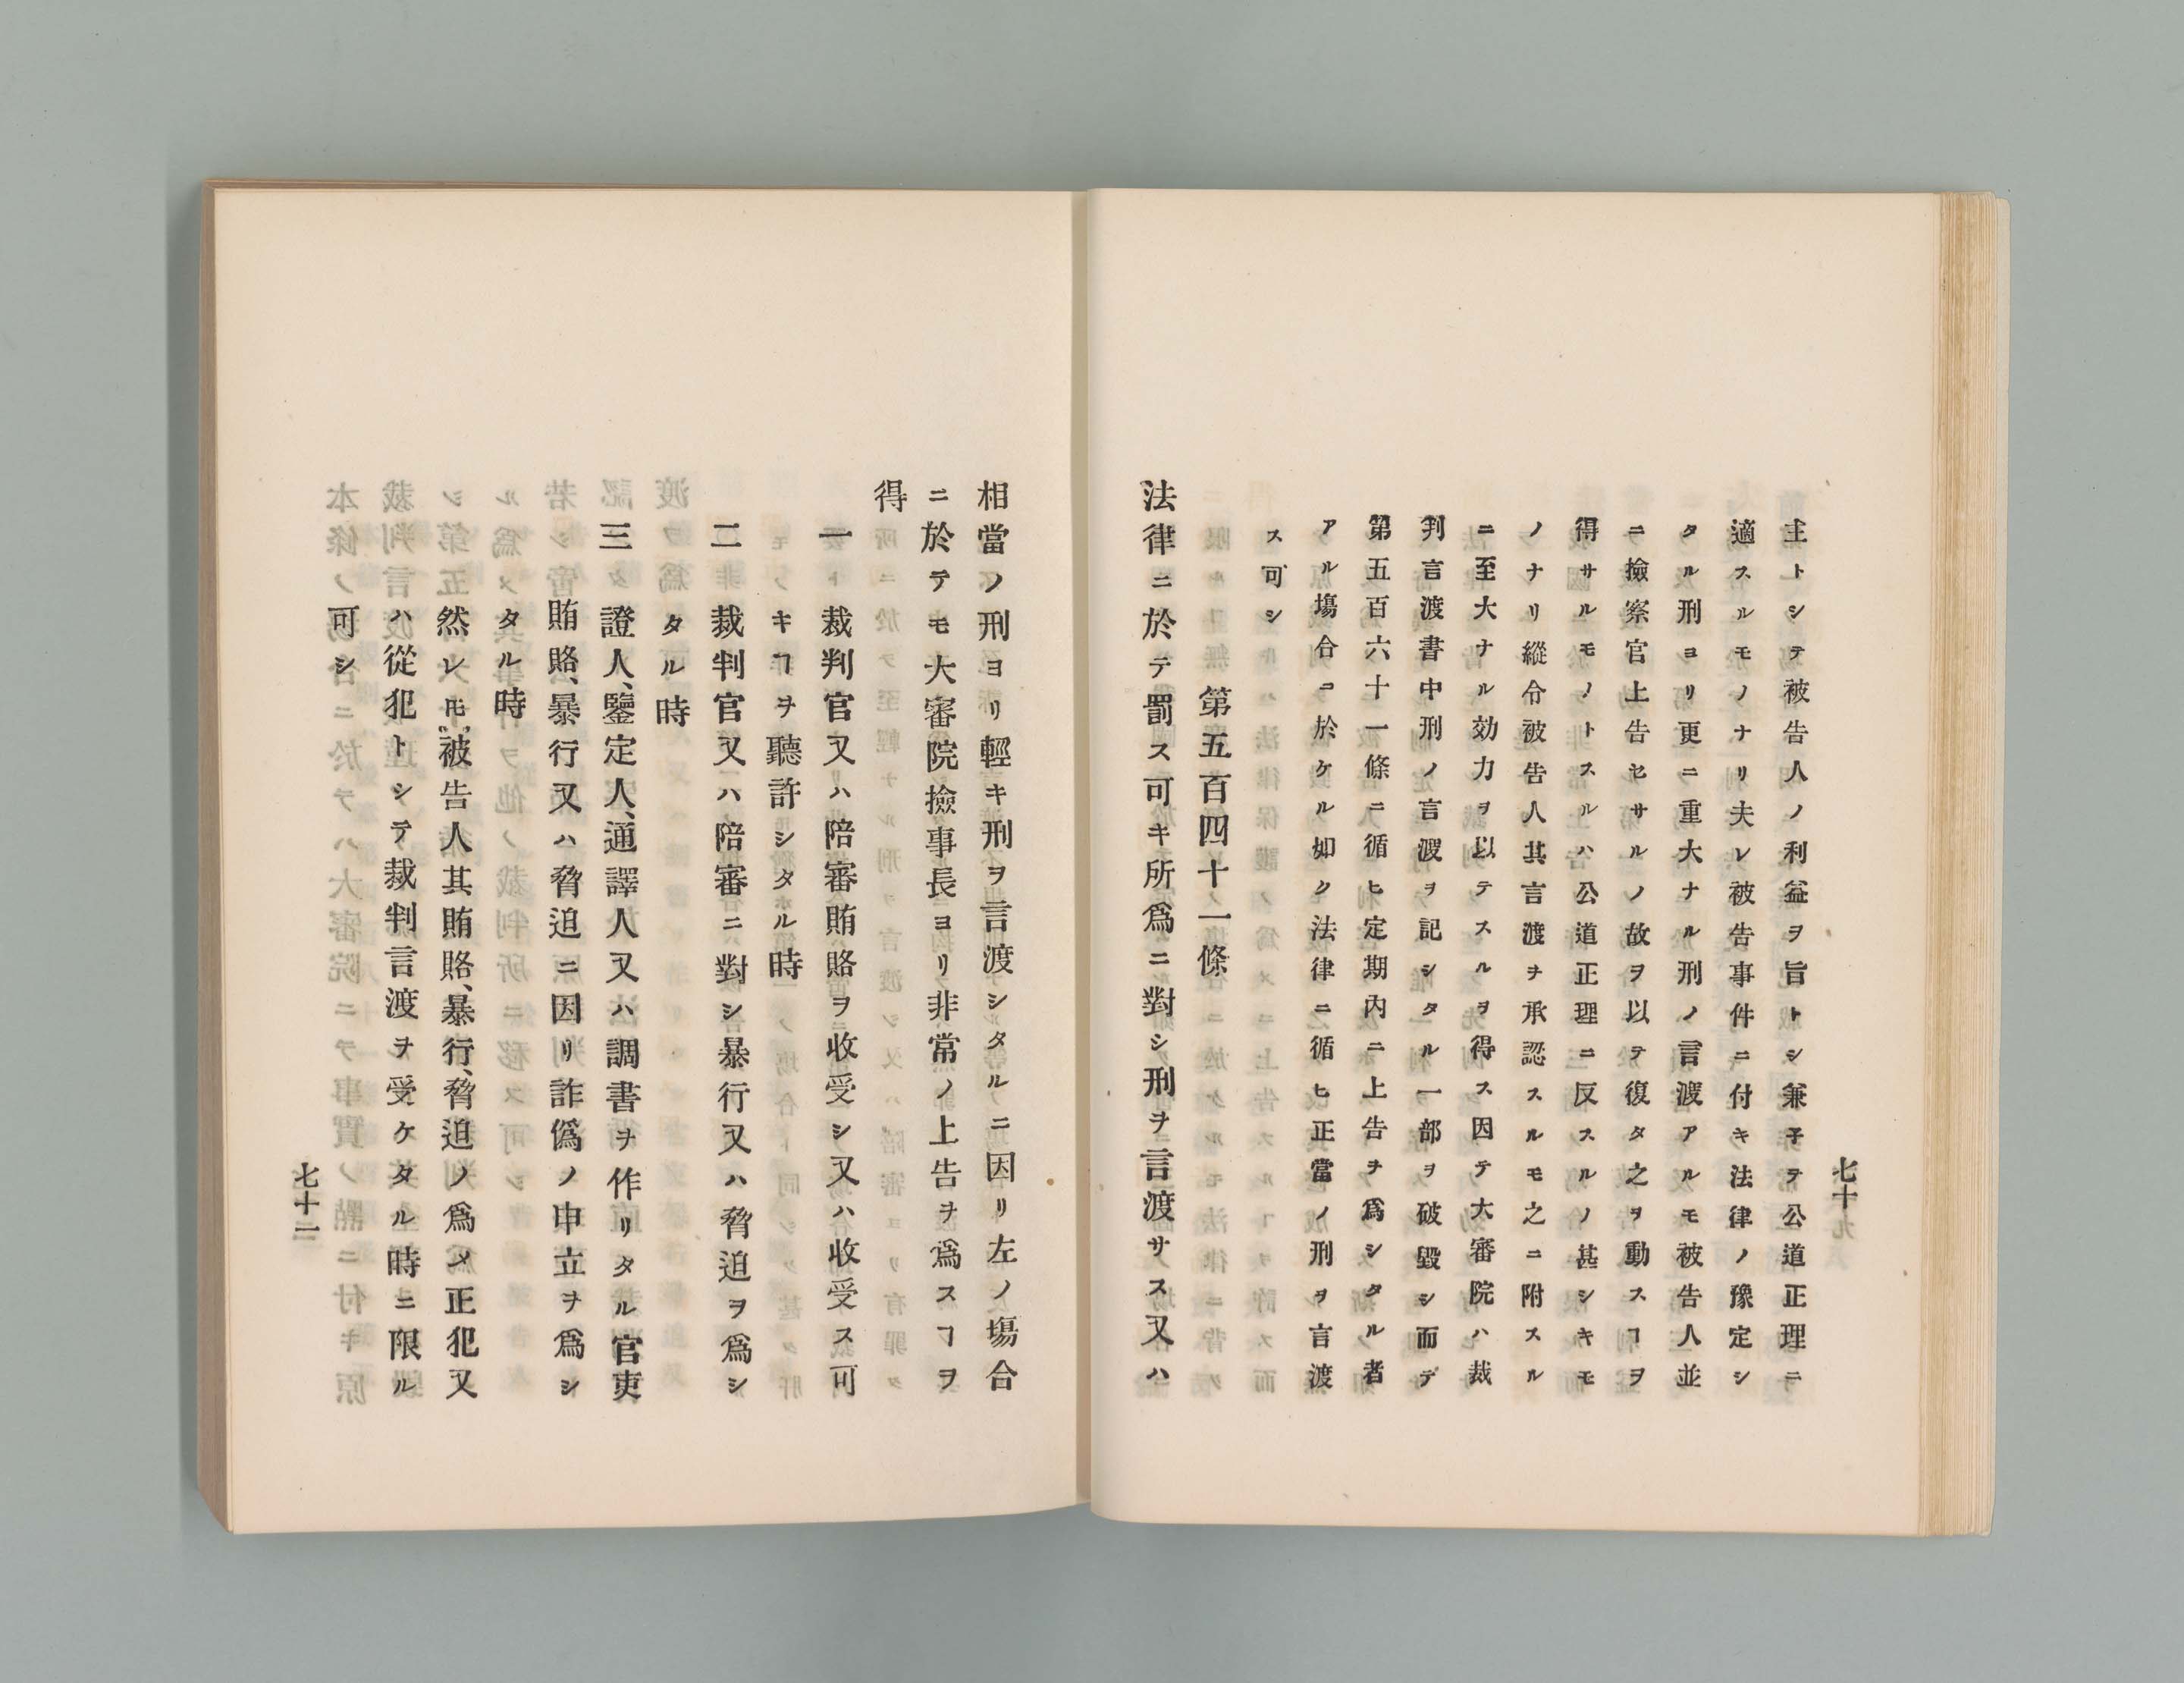 七十
主トシテ被告人ノ利益ヲ旨トシ兼子テ公道正理ニ
適スルモノナリ夫レ被告事件ニ付キ法律ノ豫定シ
タル刑ヨリ更ニ重大ナル刑ノ言渡アルモ被告人並
ニ撿察官上告セサルノ故ヲ以テ復タ之ヲ動スヿヲ
得サルモノトスルハ公道正理ニ反スルノ甚シキモ
ノナリ縱令被告人其言渡ヲ承認スルモ之ニ附スル
ニ至大ナル効力ヲ以テスルヲ得ス因テ大審院ハ裁
判言渡書中刑ノ言渡ヲ記シタル一部ヲ破毀シ而デ
第五百六十一條ニ循ヒ定期內ニ上告ヲ爲シタル者
アル塲合ニ於ケル如ク法律ニ循ヒ正當ノ刑ヲ言渡
ス可シ
第五百四十一條
法律ニ於テ罰ス可キ所爲ニ對シ刑ヲ言渡サス又ハ
相當ノ刑ヨリ輕キ刑ヲ言渡シタルニ因リ左ノ塲合
ニ於テモ大審院撿事長ヨリ非常ノ上告ヲ爲スヿヲ
得
一 裁判官又ハ陪審賄賂ヲ收受シ又ハ收受ス可
キヿヲ聽許シタル時
二 裁判官又ハ陪審ニ對シ暴行又ハ脅迫ヲ爲シ
タル時
三 證人、鑒定人、通譯人又ハ調書ヲ作リタル官吏
賄賂、暴行又ハ脅迫ニ因リ詐僞ノ申立ヲ爲シ
タル時
然レ𪜈、被告人其賄賂、暴行、脅迫ノ爲メ正犯又
ハ從犯トシテ裁判言渡ヲ受ケタル時ニ限ル
可シ
七十一